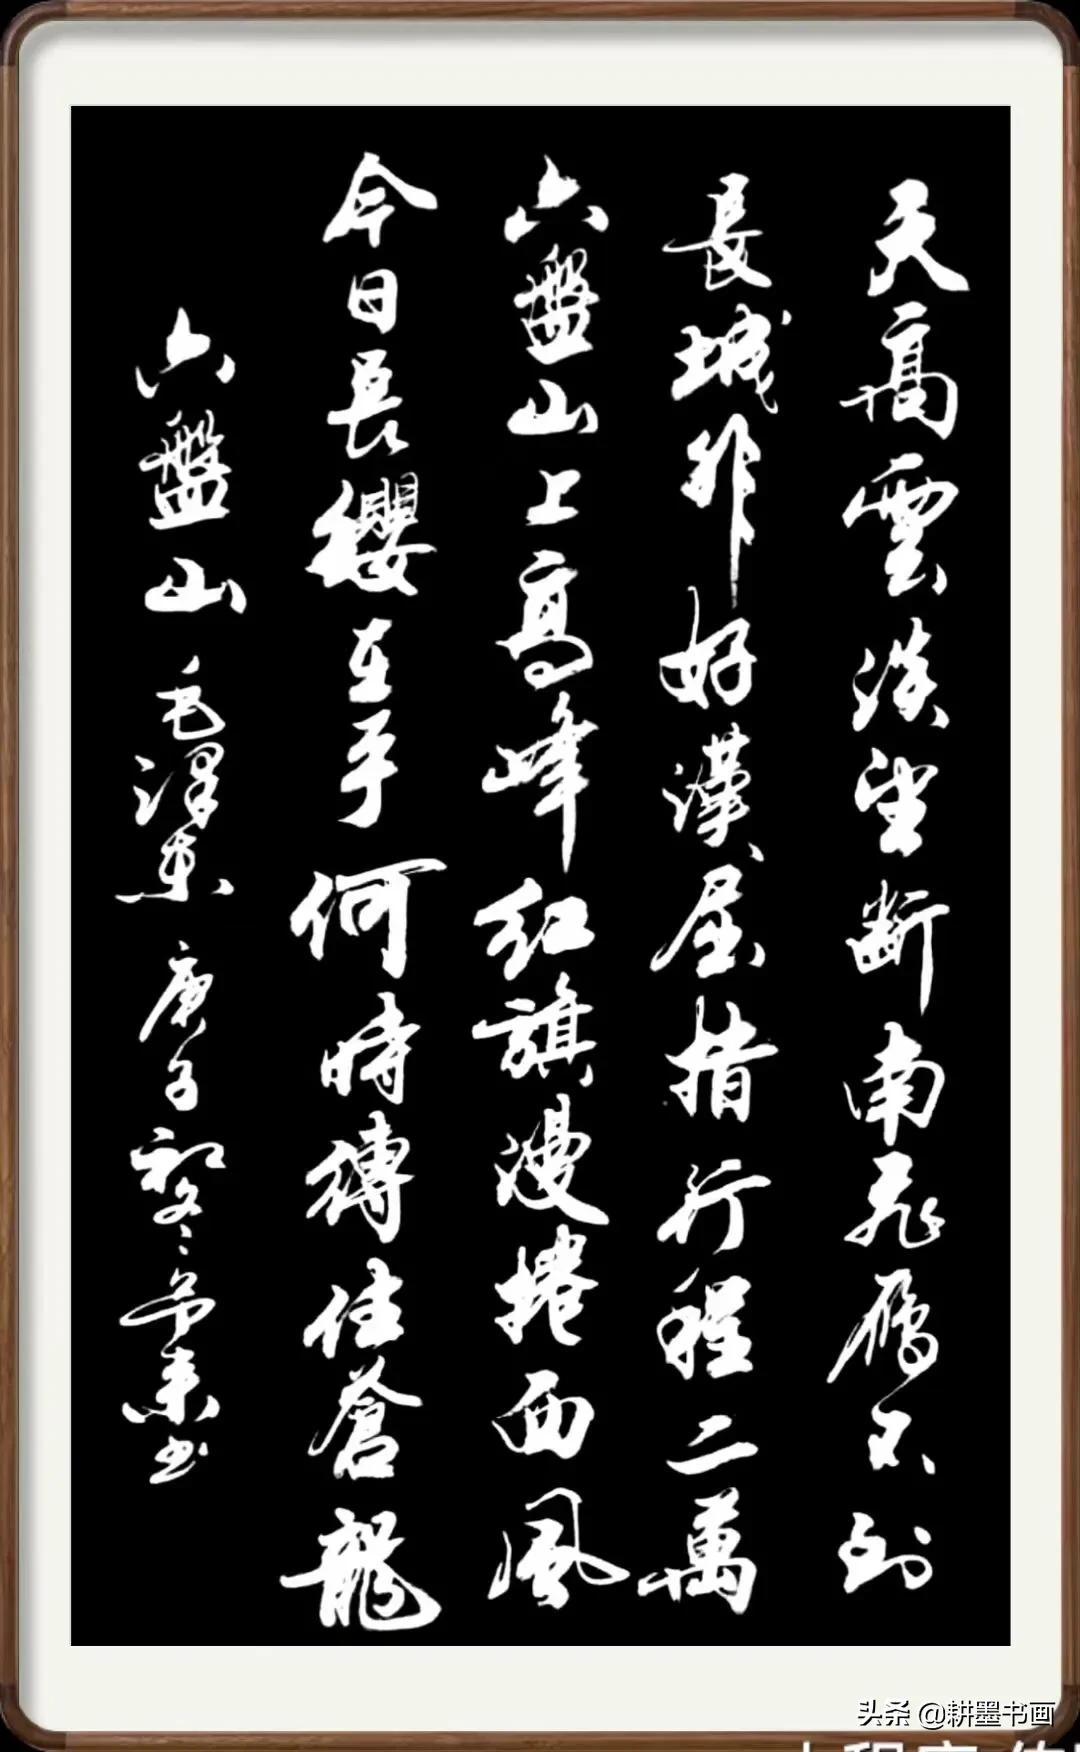 天高雲淡望断南飛雁不到
長城非好漢屈指行程二萬
六盤山上高峰红旗漫捲西風
今日長纓在手何時縛住蒼龍
六盤山毛澤東庚子初冬
书
头条 @耕墨书画